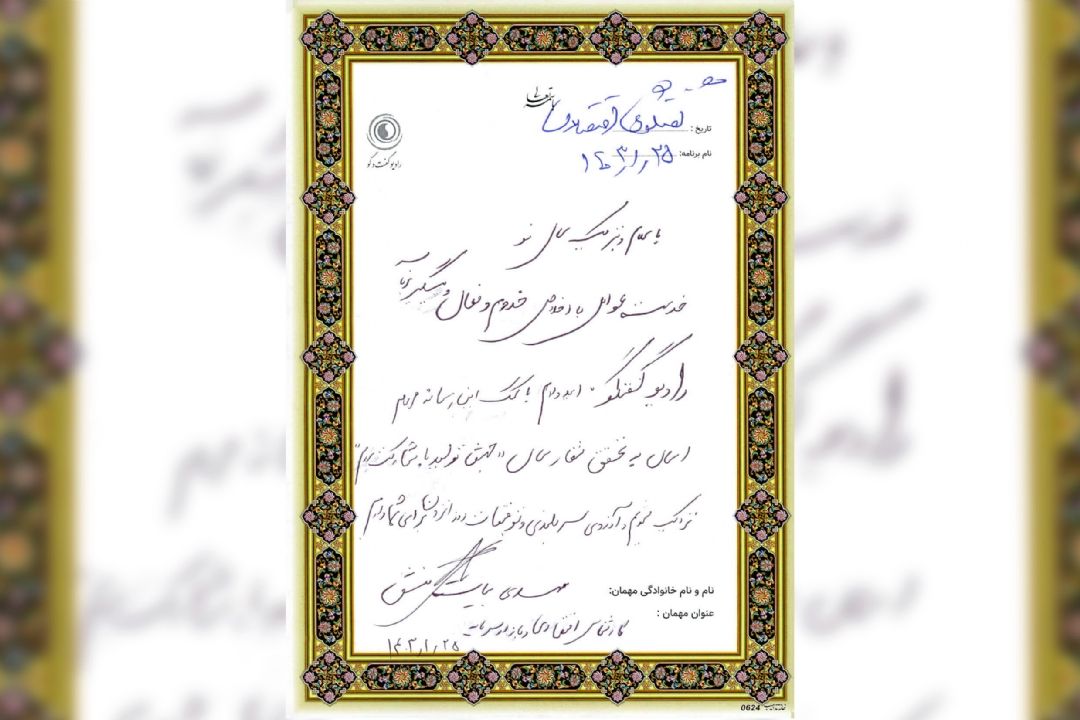 باسمه تعالی
رادیو گفت و گو
تاریخ :
گفتگوی اقتصادی
نام برنامه:
۱۴۰۳/۱/۲۵
با سلام و تبریک سال نو
خدمت عوامل با اخلاص خدوم و فعال و
رادیو گفتگو امیدوارم با کمک این رسانه مردم
امسال به تحقق شعار سال "جهش تولید با مشارکت مردم"
نزدیک شویم و آرزوی سربلندی و توفیقات روزافزون برای شما دارم
نام و نام خانوادگی مهمان:
مهدی
عنوان مهمان :
کارشناس اقتصادی و بازار سرمایه
۱۴۰۳/۱/۲۵
0624